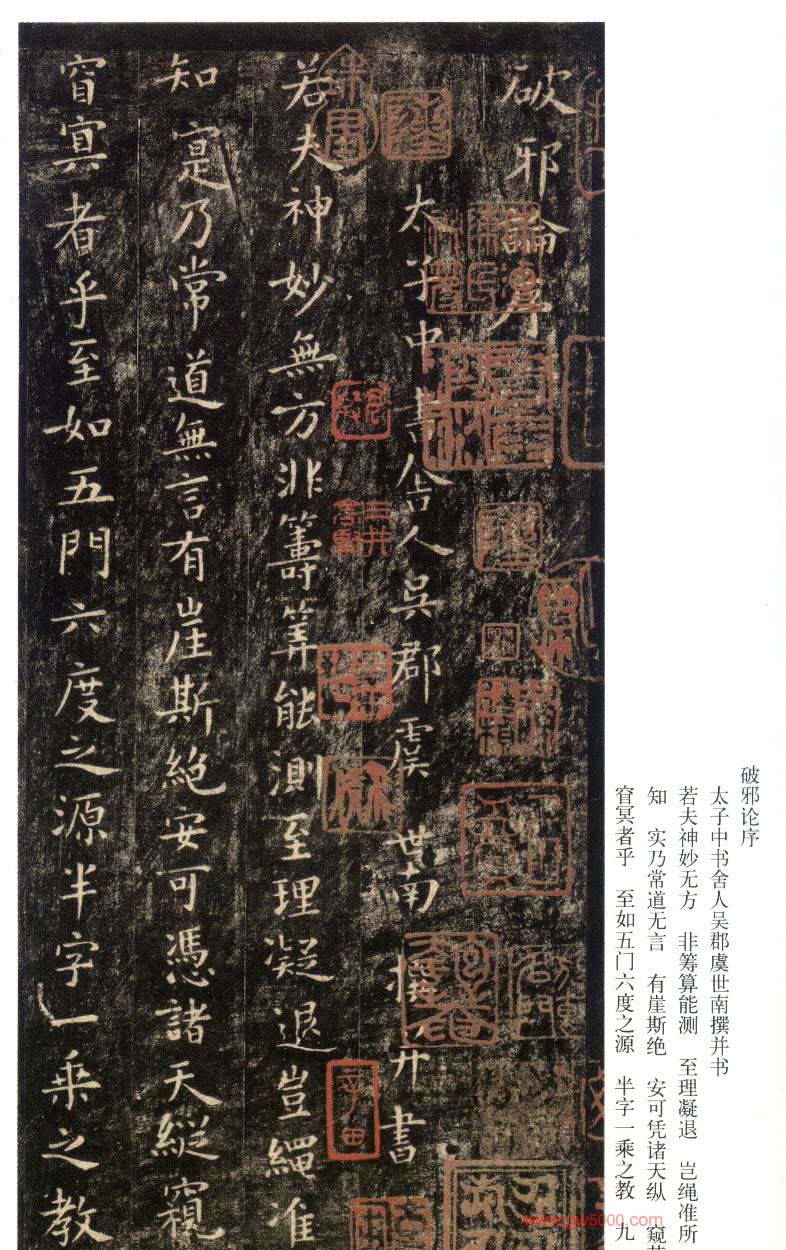 破邪論序
太子中書舍人吳郡虞世南撰并書
若夫神妙無方非籌筭能測至理凝退豈繩准
知寔乃常道無言有崖斯絕安可憑諸天縱窺
窅冥者乎至如五門六度之源半字一乘之教
破邪论序
太子中书舍人吴郡虞世南撰并书
若夫神妙无方 非筹算能测 至理凝退 岂绳准所
知 实乃常道无言 有崖斯绝 安可凭诸天纵 窥
窅冥者乎 至如五门六度之源 半字一乘之教 九